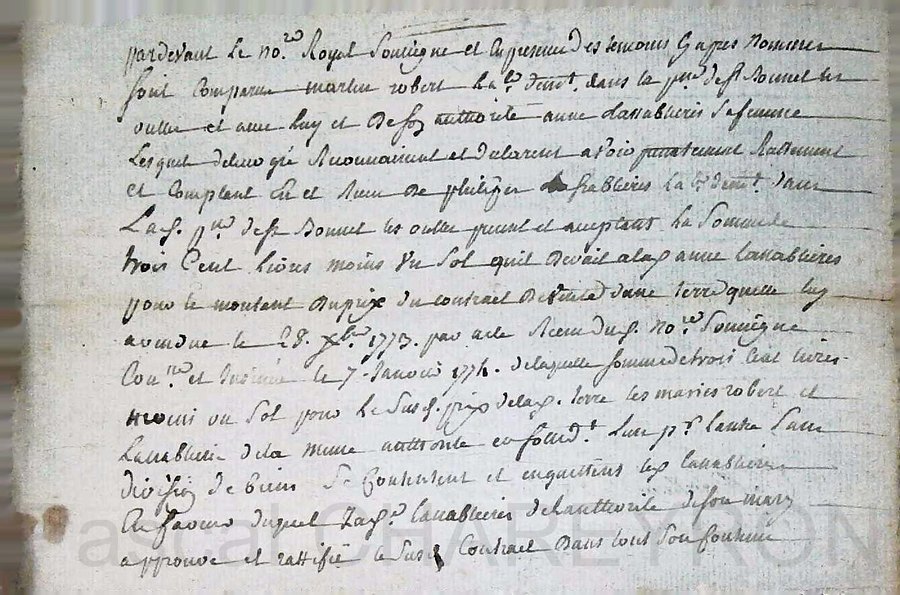 pardevant le no.re Royal Soussigne et en presence des temoins Gapres nommes
Soit Comparu martin robert La.r demt. dans la p.sse de St Bonnet les
oulles et avec luy et De son authorité anne Lassablieres Sa femme
Lesquels de leur gré Reconnaissent et declarent avoir presentement Reellement
et Comptant Eu et Recu De philipe Lassablieres La.r demt. dans
La d. p.sse de St Bonnet les oulles present et acceptant La Somme de
trois Cent livres moins Un Sol quil Devait a lad anne Lassablieres
pour le montant Du prix du contract De Vente dune terre quelle luy
a vendue le 28. xbre 1773. par acte Recu dud. no.re Soussigne
Con.lé et Insinué le 7. Janvier 1774. de laquelle somme de trois Cent livres
moins un Sol pour le Susd. prix de lad. terre les maries robert et
Lassabliere de la meme authorité en Solid.t Lun p.r lautre Sans
division de biens Se Contentent et en quittent led Lassablieres
En faveur duquel La d. Lassablieres de lauthorité de son mary
approuve et rattifie le Susd. Contract Dans tout Son Contenu
Pascal CHAREYRON